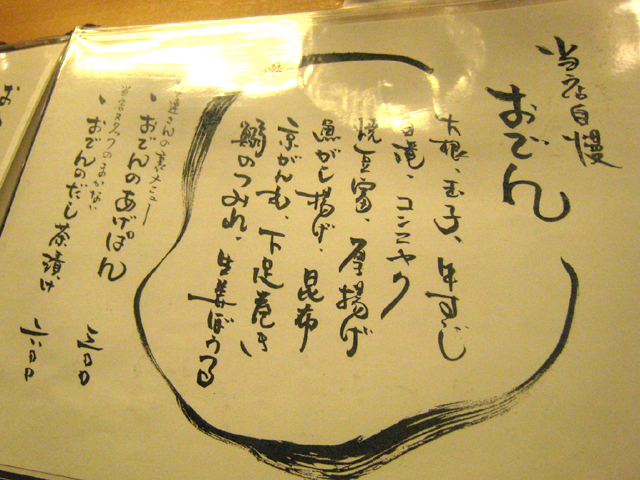 当店自慢
おでん
大根、玉子、牛すじ
白滝、コンニャク
焼豆富、厚揚げ
魚がし揚げ、昆布
京がんも、下足巻き
鰯のつみれ、生姜ぼうる
さんの裏メニュー
・おでんのあげぱん
当店スタッフのまかない
・おでんのだし茶漬け